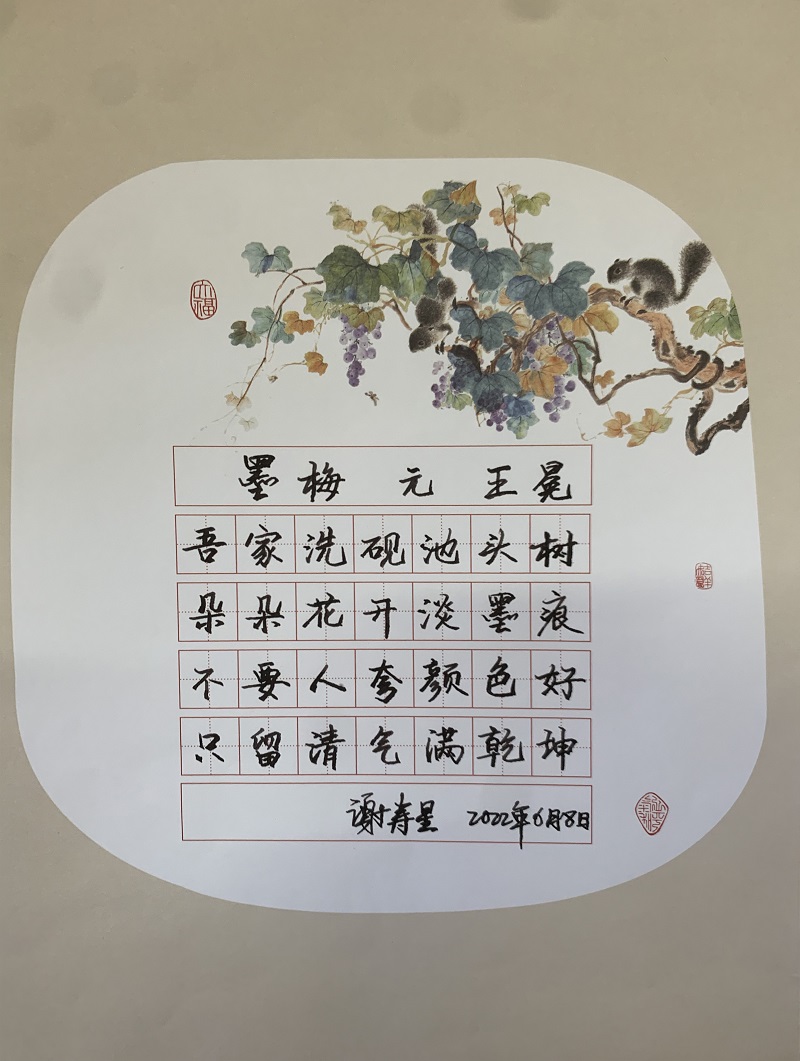 墨梅 元 王冕
吾家洗砚池头树
朵朵花开淡墨痕
不要人夸颜色好
只留清气满乾坤
谢寿星 2022年6月8日